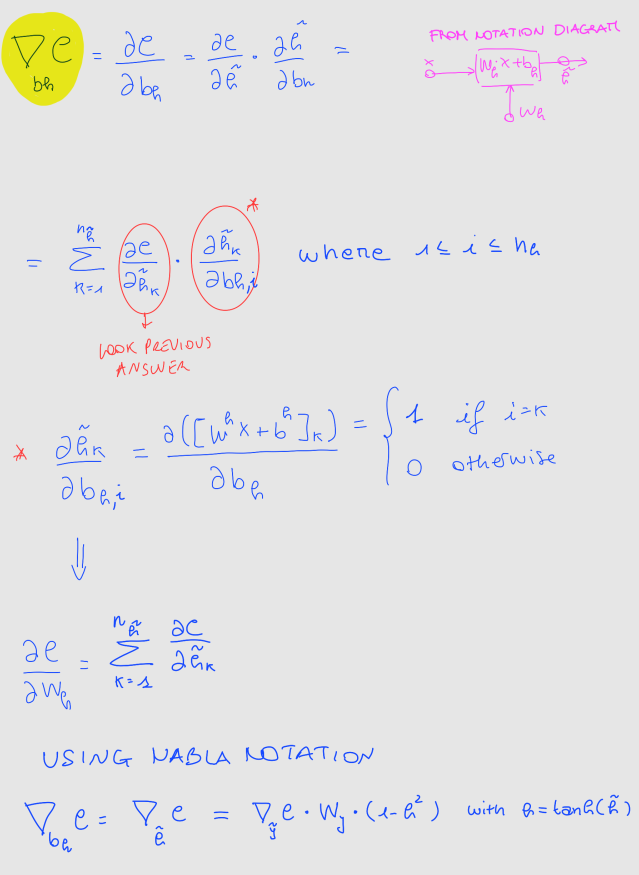 ∇_{bh} ℓ = ∂ℓ/∂b_h = ∂ℓ/∂h̃ · ∂h̃/∂b_h =
FROM NOTATION DIAGRAM
x [W_h x + b_h] h̃
W_h
= Σ_{k=1}^{n_h̃} ∂ℓ/∂h̃_k · ∂h̃_k/∂b_{h,i} * where 1 ≤ i ≤ n_h
LOOK PREVIOUS
ANSWER
* ∂h̃_k/∂b_{h,i} = ∂([W^h x + b^h]_k)/∂b_h = { 1 if i=k
0 otherwise
⇓
∂ℓ/∂W_h = Σ_{k=1}^{n_h̃} ∂ℓ/∂h̃_k
USING NABLA NOTATION
∇_{b_h} ℓ = ∇_{h̃} ℓ = ∇_{ỹ} ℓ · W_y · (1-h²) with h = tanh(h̃)